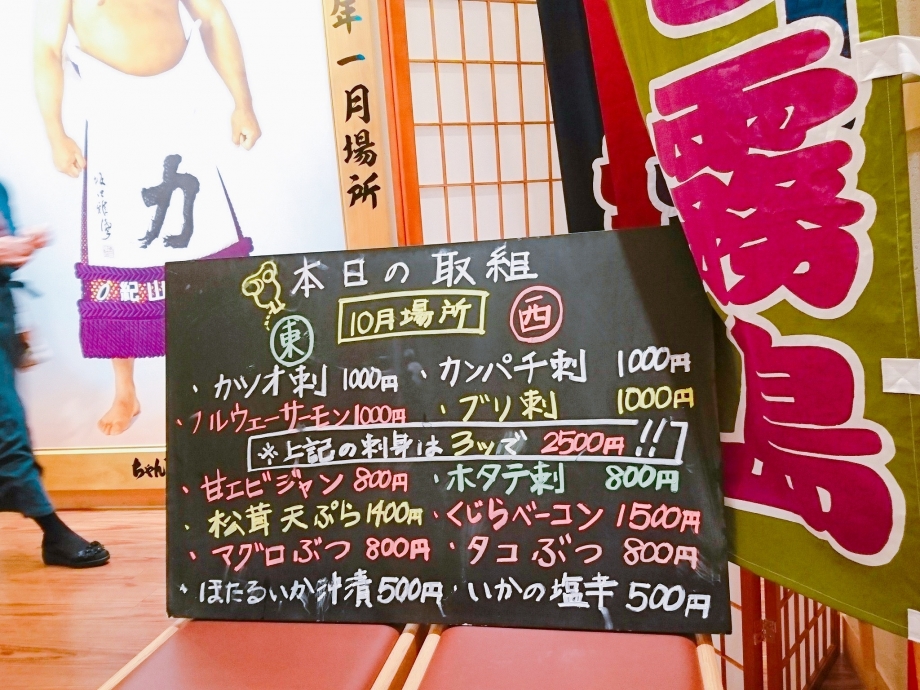 年一月場所
力
紀
霧島
本日の取組
10月場所
東
西
・カツオ刺 1000円
・カンパチ刺 1000円
・ノルウェーサーモン1000円
・ブリ刺 1000円
※上記の刺身は3ッで 2500円!!
・甘エビジャン 800円
・ホタテ刺 800円
・松茸天ぷら1400円
・くじらベーコン 1500円
・マグロぶつ 800円
・タコぶつ 800円
・ほたるいか沖漬500円
・いかの塩辛 500円
ちゃん